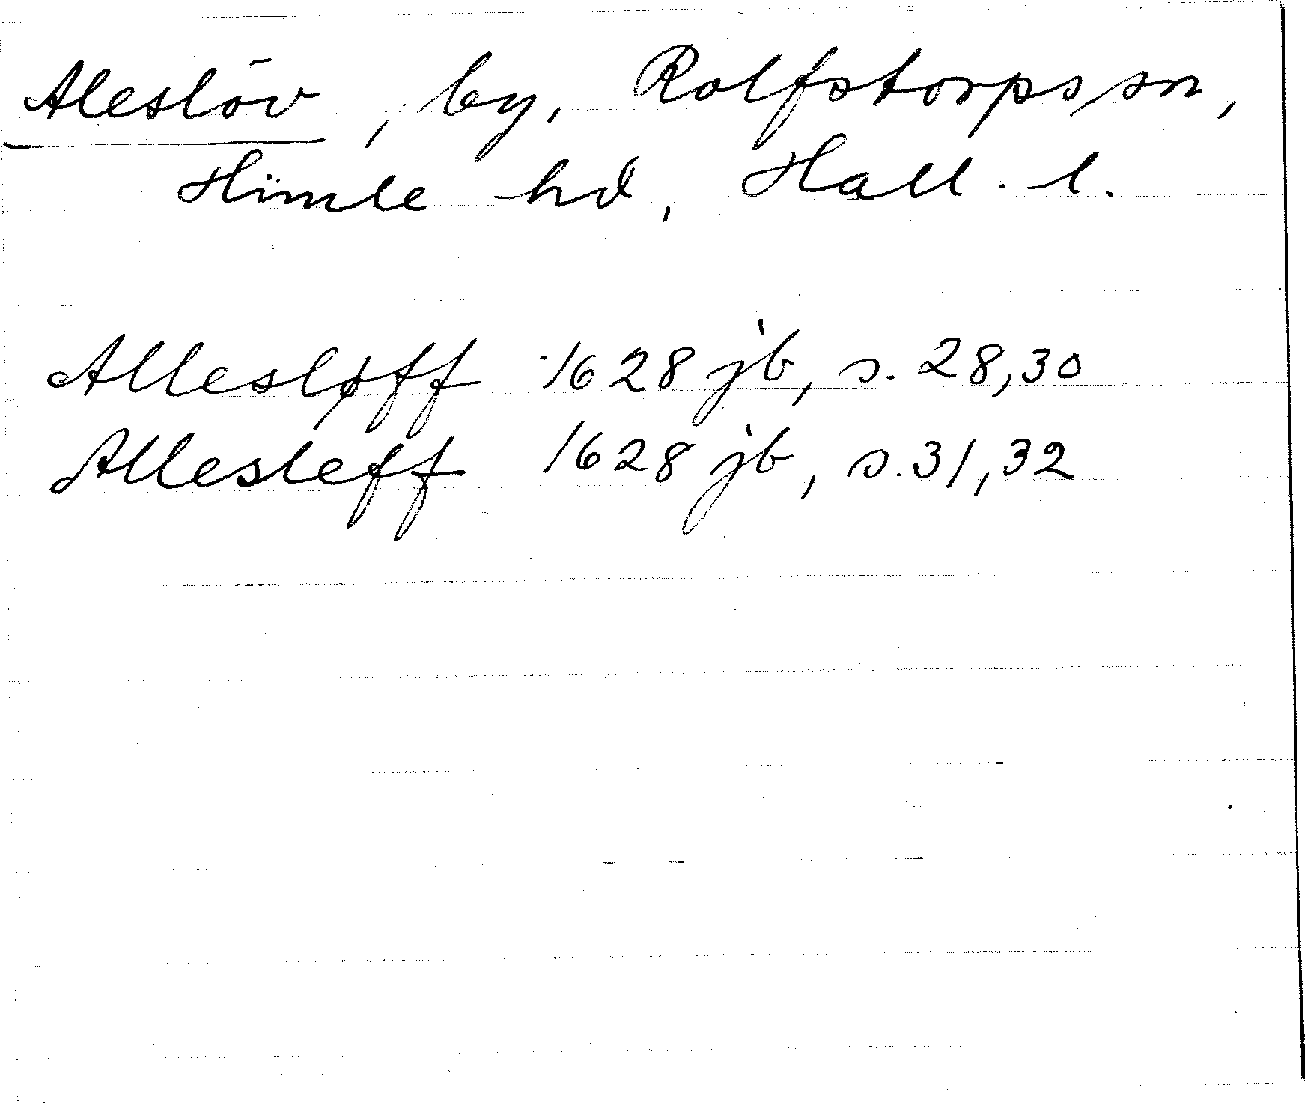 Aleslöv, by, Rolfstorps sn,
Himle hd, Hall. l.
Allesløff 1628 jb, s. 28,30
Allesleff 1628 jb, s. 31,32